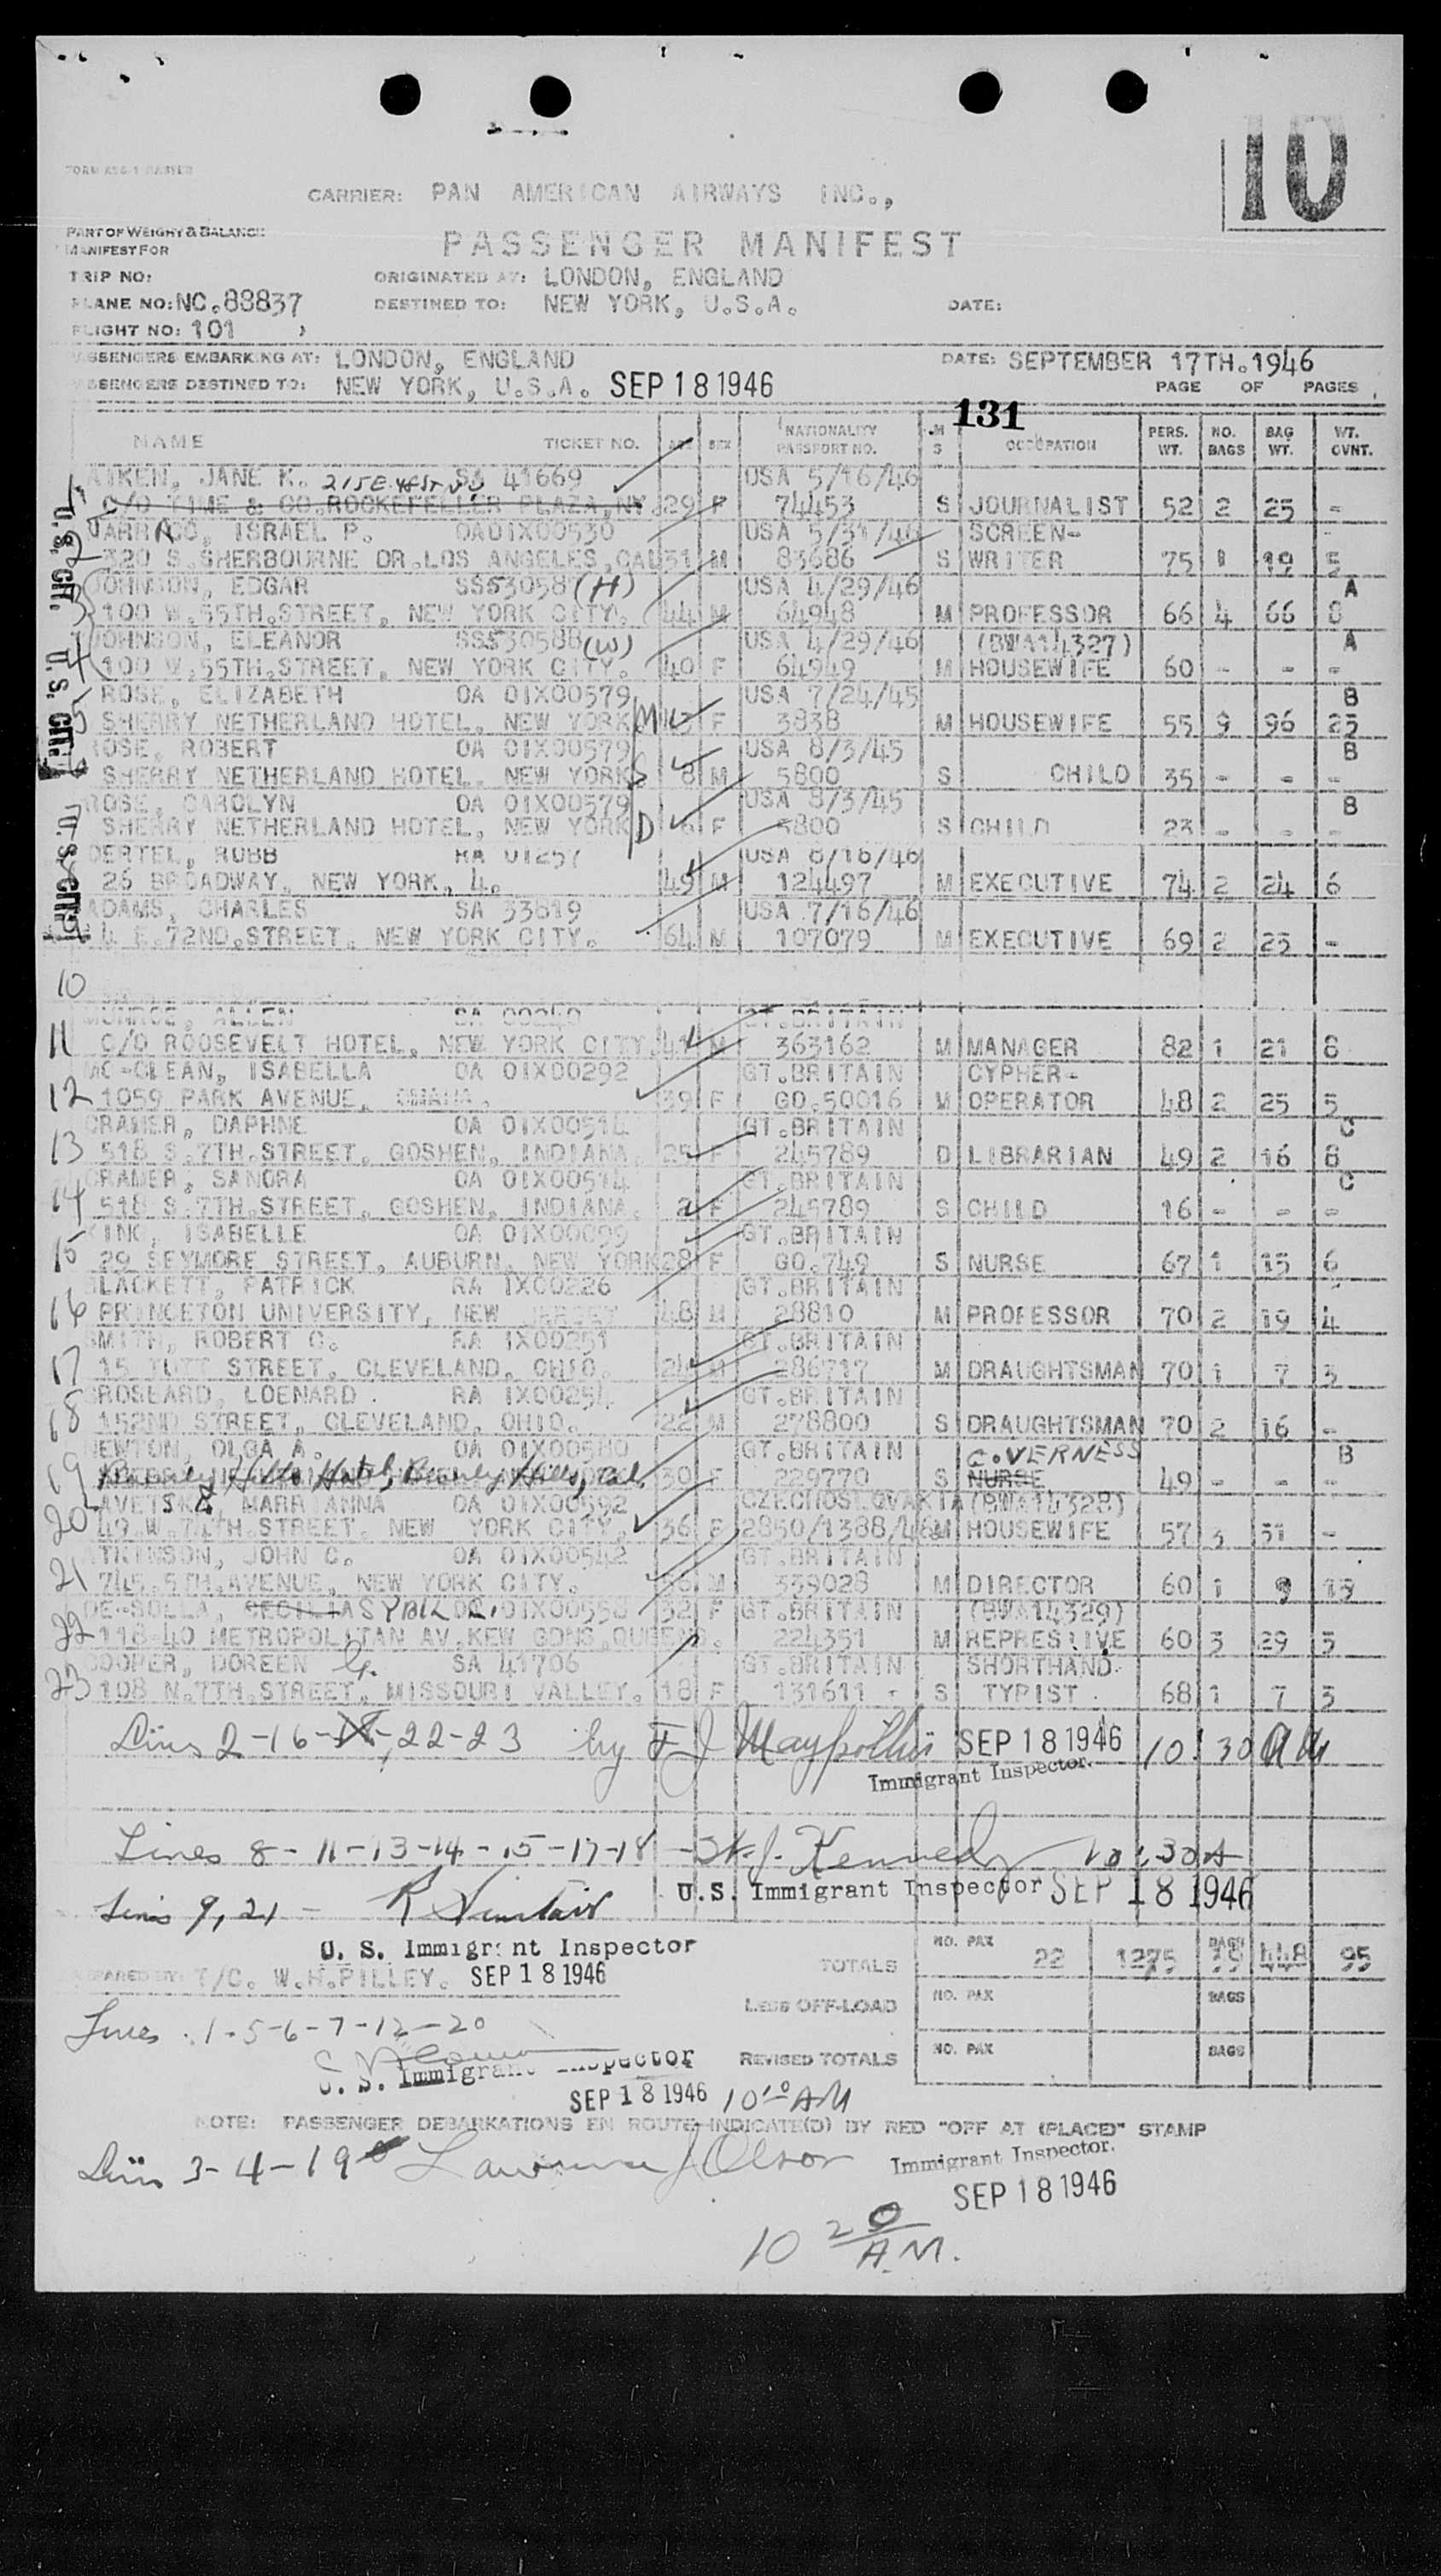 10
CARRIER: PAN AMERICAN AIRWAYS INC.,
PART OF WEIGHT & BALANCE
MANIFEST FOR
PASSENGER MANIFEST
TRIP NO:
ORIGINATED AT: LONDON, ENGLAND
PLANE NO: NC.88837
DESTINED TO: NEW YORK, U.S.A.
DATE:
FLIGHT NO: 101
PASSENGERS EMBARKING AT: LONDON, ENGLAND
DATE: SEPTEMBER 17TH.1946
PASSENGERS DESTINED TO: NEW YORK, U.S.A. SEP 18 1946
PAGE OF PAGES
131
NAME TICKET NO. AGE SEX NATIONALITY PASSPORT NO. M S OCCUPATION PERS. WT. NO. BAGS BAG WT. WT. OVNT.
AITKEN, JANE K. SA 41669 USA 5/16/46
C/O TIME & CO.ROCKEFELLER PLAZA,NY 29 F 74453 S JOURNALIST 52 2 25 -
ISRAEL P. OA01X00530 USA 5/31/46 SCREEN-
320 S.SHERBOURNE DR.LOS ANGELES,CAL 31 M 83686 S WRITER 75 1 19 5
JOHNSON, EDGAR SS53058 (H) USA 4/29/46 A
100 W.55TH.STREET, NEW YORK CITY. 44 M 64948 M PROFESSOR 66 4 66 8
JOHNSON, ELEANOR SS53058B (W) USA 4/29/46 (BWA14327) A
100 W.55TH.STREET, NEW YORK CITY. 40 F 64949 M HOUSEWIFE 60 - - -
ROSE, ELIZABETH OA 01X00579 USA 7/24/45 B
SHERRY NETHERLAND HOTEL, NEW YORK M F 3838 M HOUSEWIFE 55 9 96 25
ROSE, ROBERT OA 01X00579 USA 8/3/45 B
SHERRY NETHERLAND HOTEL, NEW YORK S 8 M 5800 S CHILD 35 - - -
ROSE, CAROLYN OA 01X00579 USA 8/3/45 B
SHERRY NETHERLAND HOTEL, NEW YORK D 6 F 5800 S CHILD 23 - - -
OERTEL, ROBB RA 01257 USA 8/16/46
26 BROADWAY, NEW YORK, 4. 49 M 124497 M EXECUTIVE 74 2 24 6
ADAMS, CHARLES SA 33819 USA 7/16/46
4 E.72ND.STREET, NEW YORK CITY. 64 M 107079 M EXECUTIVE 69 2 25 -
10
MUNROE, ALLEN SA 00240 GT.BRITAIN
11 C/O ROOSEVELT HOTEL, NEW YORK CITY. 41 M 363162 M MANAGER 82 1 21 8
MC-CLEAN, ISABELLA OA 01X00292 GT.BRITAIN CYPHER-
12 1059 PARK AVENUE, OMAHA. 39 F GO.50016 M OPERATOR 48 2 25 5
CRAMER, DAPHNE OA 01X00514 GT.BRITAIN C
13 518 S.7TH.STREET, GOSHEN, INDIANA. 25 F 245789 D LIBRARIAN 49 2 16 8
CRAMER, SANDRA OA 01X00514 GT.BRITAIN C
14 518 S.7TH.STREET, GOSHEN, INDIANA. 2 F 245789 S CHILD 16 - - -
KING, ISABELLE OA 01X00099 GT.BRITAIN
15 29 SEYMORE STREET, AUBURN, NEW YORK 28 F GO.749 S NURSE 67 1 15 6
BLACKETT, PATRICK RA 1X00226 GT.BRITAIN
16 PRINCETON UNIVERSITY, NEW JERSEY 48 M 28810 M PROFESSOR 70 2 19 4
SMITH, ROBERT G. RA 1X00251 GT.BRITAIN
17 15 TUTT STREET, CLEVELAND, OHIO. 24 M 286717 M DRAUGHTSMAN 70 1 7 3
LOENARD RA 1X00254 GT.BRITAIN
18 152ND STREET, CLEVELAND, OHIO. 22 M 278800 S DRAUGHTSMAN 70 2 16 -
NEWTON, OLGA A. OA 01X00580 GT.BRITAIN GOVERNESS B
19 Beverly Hills Hotel, Beverly Hills, Cal. 30 F 229770 S NURSE 49 - - -
MARRIANNA OA 01X00592 CZECHOSLOVAKIA (BWA14328)
20 49.W.74TH.STREET, NEW YORK CITY. 36 F 2850/1388/46 M HOUSEWIFE 57 3 31 -
ATKINSON, JOHN C. OA 01X00542 GT.BRITAIN
21 745.5TH.AVENUE, NEW YORK CITY. 36 M 339028 M DIRECTOR 60 1 9 19
DE-SOLLA, CECILIA SYBIL OA.01X00558 32 F GT.BRITAIN (BWA14329)
22 118-40 METROPOLITAN AV.KEW GDNS.QUEENS. 224351 M REPRES:IVE 60 3 29 5
COOPER, DOREEN G. SA 41706 GT.BRITAIN SHORTHAND.
23 108 N.7TH.STREET, MISSOURI VALLEY. 18 F 131611 - S TYPIST. 68 1 7 3
Lines 2-16-18-22-23 by F J SEP 18 1946 10:30 AM
Immigrant Inspector.
Lines 8-11-13-14-15-17-18 - J. Kennedy 10:30A
U.S. Immigrant Inspector SEP 18 1946
Lines 9, 21 - R Sinclair
U. S. Immigrant Inspector
PREPARED BY: T/C. W.H.PILLEY. SEP 18 1946
TOTALS NO. PAX 22 1275 BAGS 39 448 95
LESS OFF-LOAD NO. PAX BAGS
Lines 1-5-6-7-12-20
U. S. Immigrant Inspector
REVISED TOTALS NO. PAX BAGS
SEP 18 1946 10 10 AM
NOTE: PASSENGER DEBARKATIONS EN ROUTE INDICATE(D) BY RED "OFF AT (PLACE)" STAMP
Lines 3-4-19 Lawrence J Olson Immigrant Inspector.
SEP 18 1946
10 20 A.M.
U.S. CIT.
U.S. CIT.
U.S. CIT.